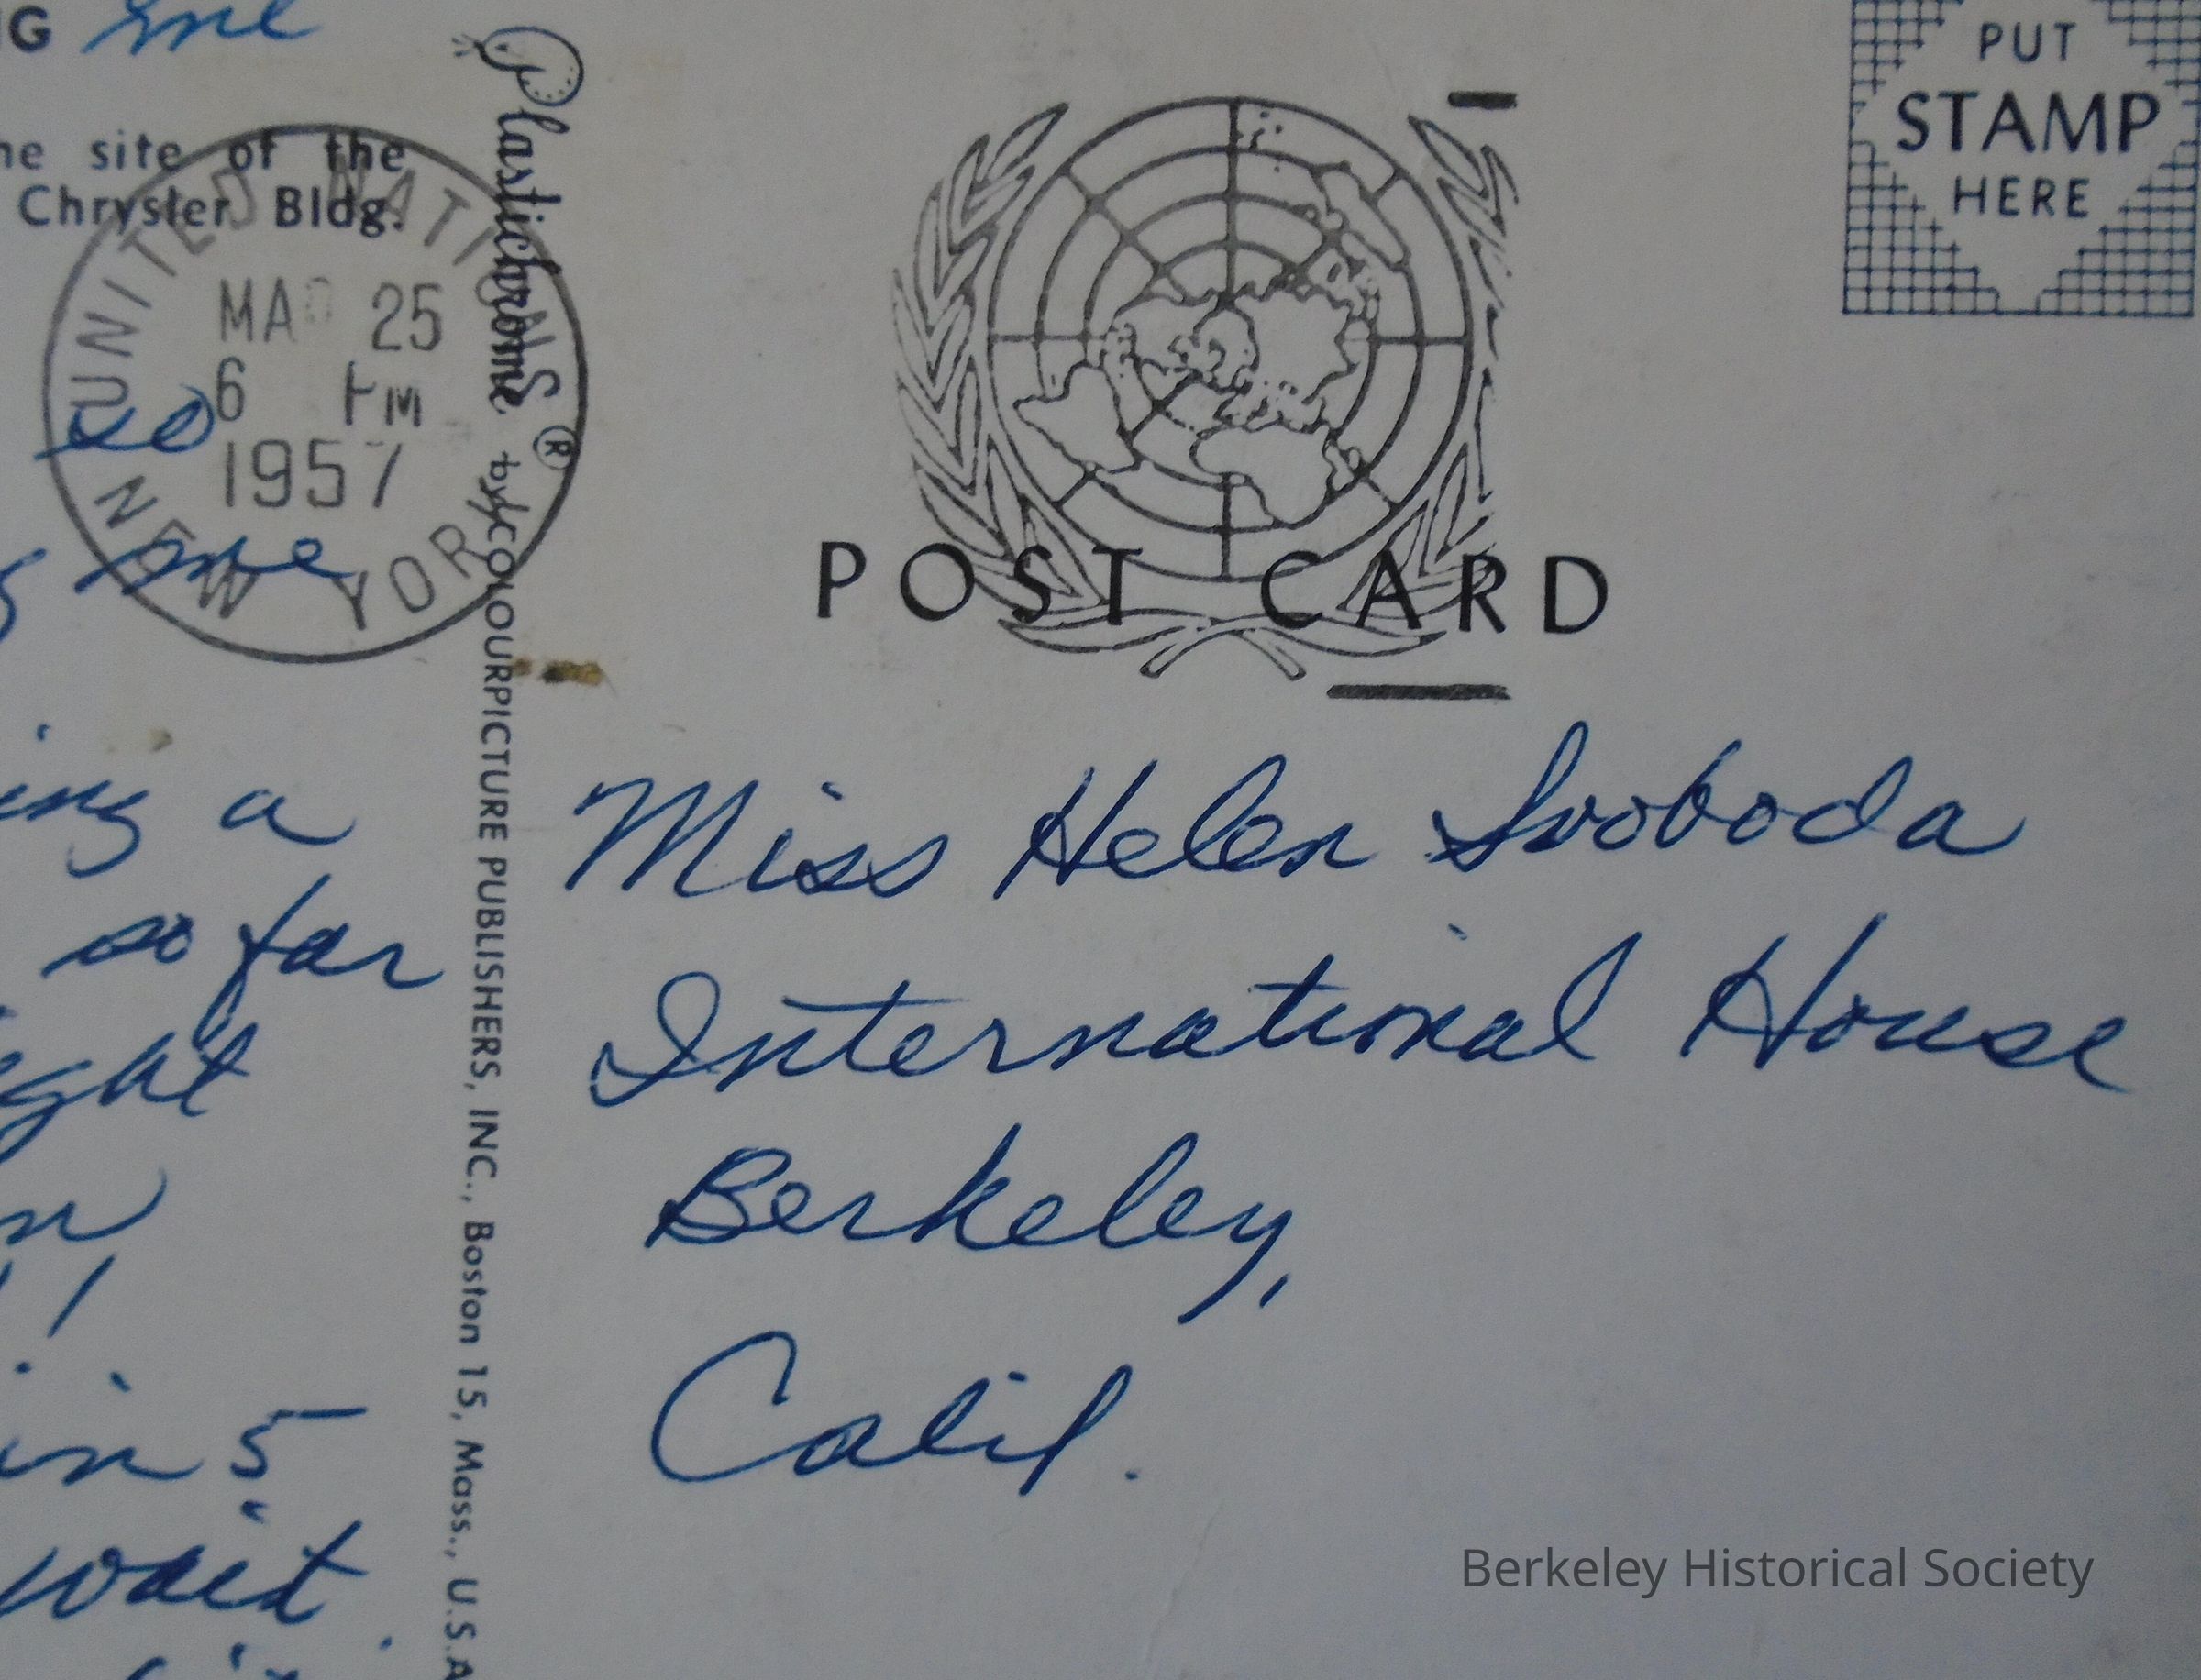 PUT
STAMP
HERE
he site of the
Chrysler Bldg.
UNITED NATIONS
MAR 25
6 PM
1957
NEW YORK
Plastichrome ®
by COLOURPICTURE PUBLISHERS, INC., Boston 15, Mass., U.S.A
POST CARD
me
ing a
so far
ght
in 5
wait
Miss Helen Svoboda
International House
Berkeley,
Calif.
Berkeley Historical Society